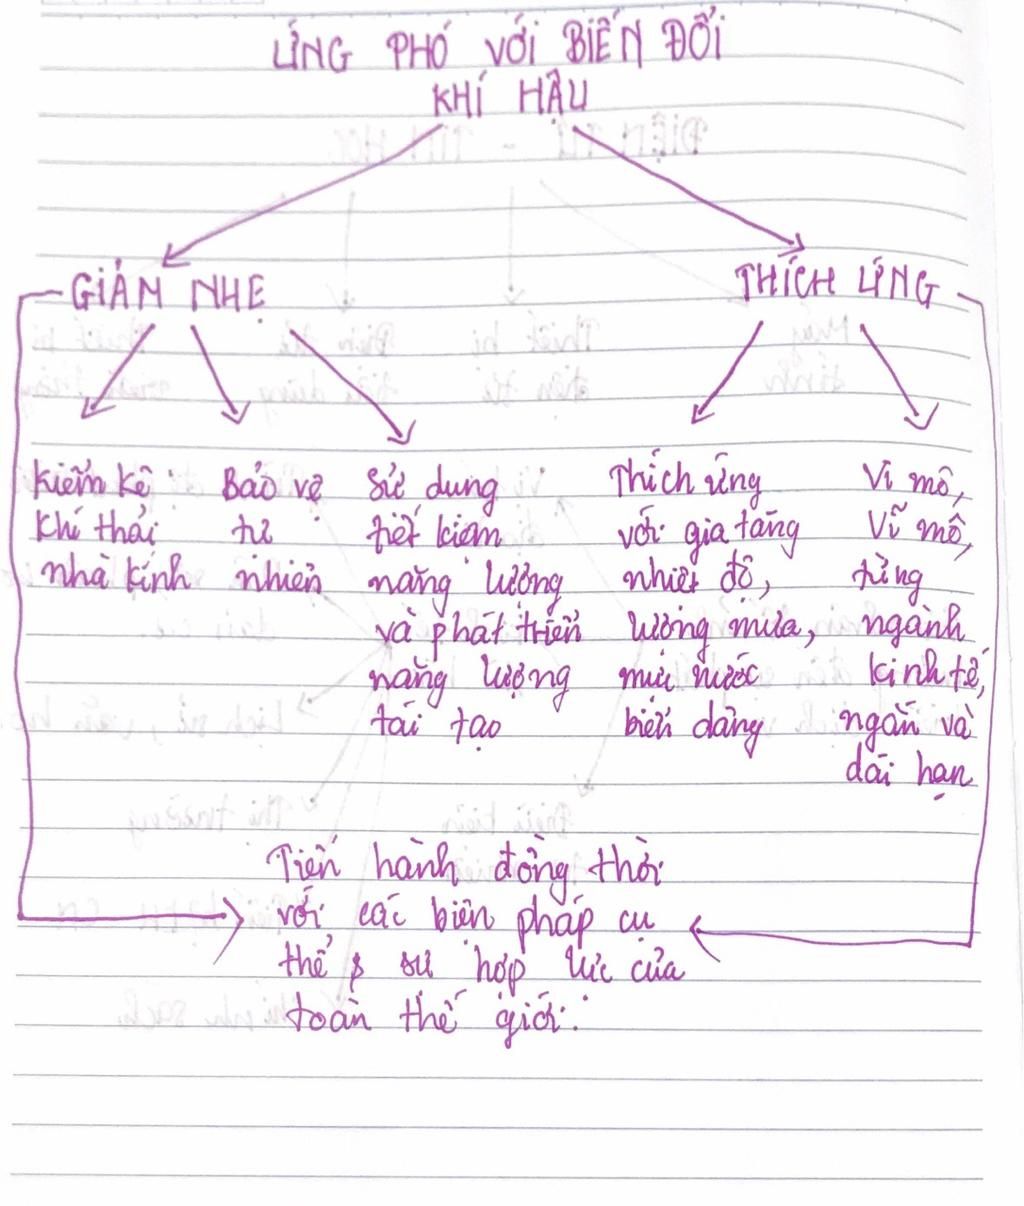 ỨNG PHÓ VỚI BIẾN ĐỔI
KHÍ HẬU
GIẢM NHẸ
THÍCH ỨNG
Kiểm kê
khí thải
nhà kính
Bảo vệ
tự
nhiên
Sử dụng
tiết kiệm
năng lượng
và phát triển
năng lượng
tái tạo
Thích ứng
với gia tăng
nhiệt độ,
lượng mưa,
mực nước
biển dâng
Vi mô,
Vĩ mô,
từng
ngành
kinh tế,
ngắn và
dài hạn
Tiến hành đồng thời
với các biện pháp cụ
thể & sự hợp lực của
toàn thế giới.